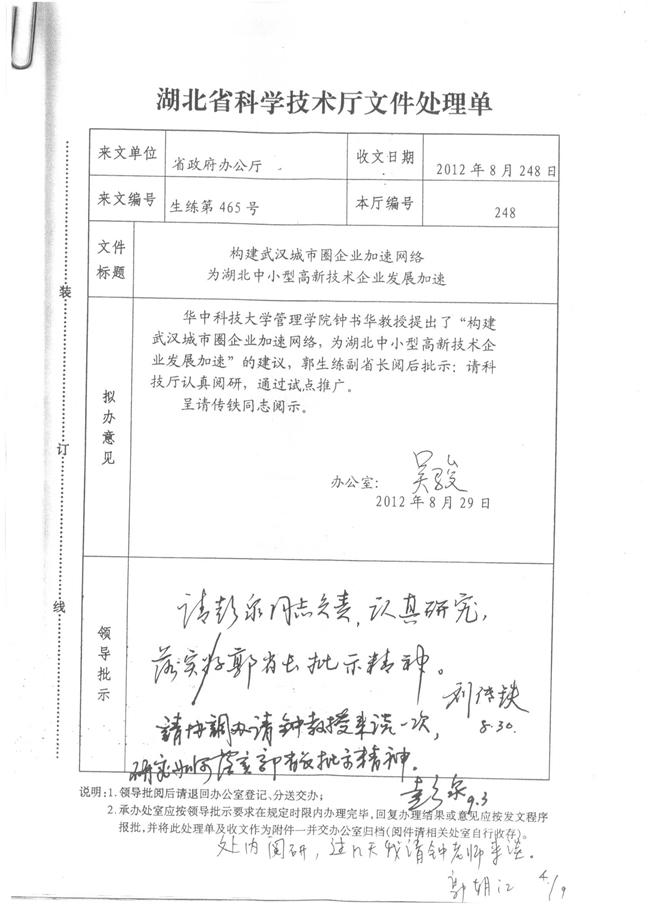 湖北省科学技术厅文件处理单
来文单位 省政府办公厅 收文日期 2012 年 8 月 248 日
来文编号 生练第 465 号 本厅编号 248
文件标题
构建武汉城市圈企业加速网络
为湖北中小型高新技术企业发展加速
拟办意见
华中科技大学管理学院钟书华教授提出了“构建
武汉城市圈企业加速网络，为湖北中小型高新技术企
业发展加速”的建议，郭生练副省长阅后批示：请科
技厅认真阅研，通过试点推广。
呈请传铁同志阅示。
办公室：吴骏
2012 年 8 月 29 日
领导批示
请彭泉同志负责，认真研究，
落实好郭省长批示精神。
刘传铁
8.30.
請协調办请钟教授来谈一次，
研究如何落实郭省长批示精神。
彭泉 9.3
说明：1. 领导批阅后请退回办公室登记、分送交办；
2. 承办处室应按领导批示要求在规定时限内办理完毕，回复办理结果或意见应按发文程序
报批，并将此处理单及收文作为附件一并交办公室归档（阅件请相关处室自行收存）。
处内阅研，这几天我请钟老师来谈。
4/9
装
订
线